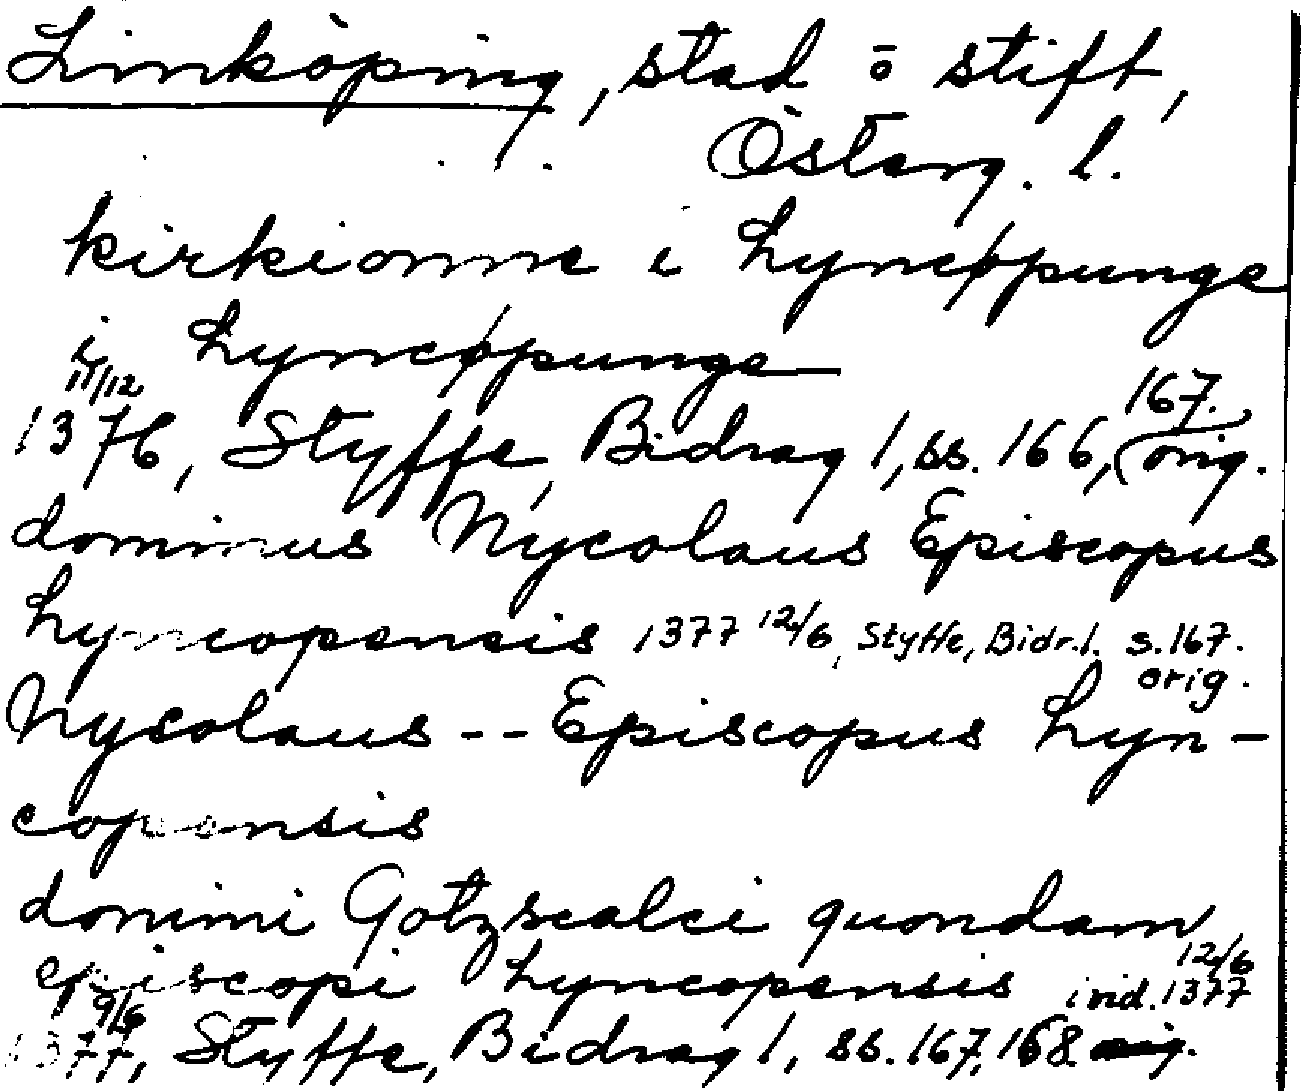 Linköping, stad o stift,
Österg. l.
kirkionne i Lyncøpunge
i Lyncøpunge
11/12 167.
1376, Styffe, Bidrag 1, ss. 166, (orig.
dominus Nycolaus Episcopus
Lyncopensis 1377 12/6, Styffe, Bidr. 1. s. 167.
orig.
Nycolaus -- Episcopus Lyn-
copensis
domini Gotzscalci quondam
episcopi Lyncopensis ivid. 1377 12/6
9/6
1377, Styffe, Bidrag 1, ss. 167, 168.